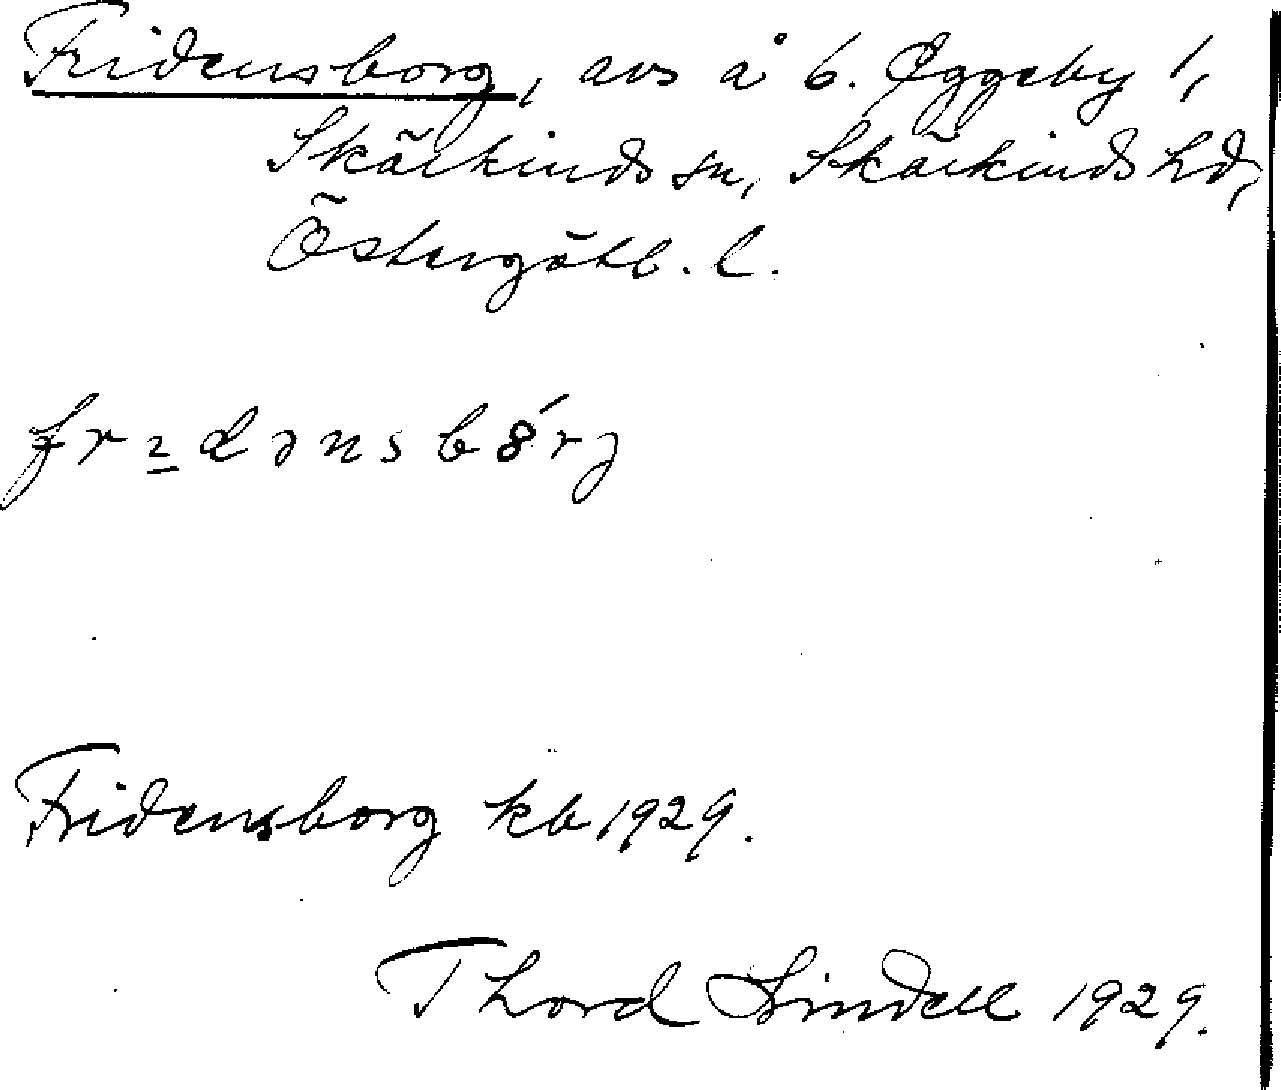 Fridensborg, avs å 6. Eggeby 1,
Skärkinds sn, Skärkinds hd,
Östergötl. l.
Fridensborg kb 1929.
Thord Lindell 1929.